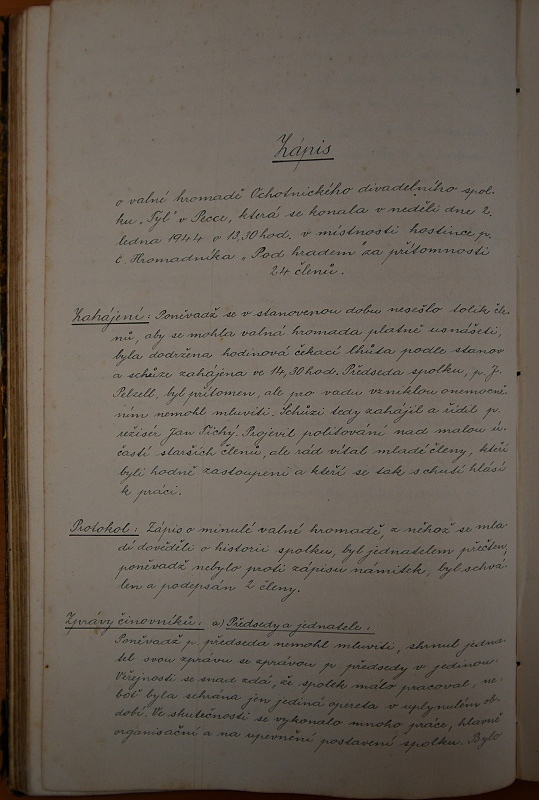 Zápis
o valné hromadě Ochotnického divadelního spol-
ku „Tyl" v Pecce, která se konala v neděli dne 2.
ledna 1944 o 13,30 hod. v místnosti hostince p.
Č. Hromadníka „Pod hradem" za přítomnosti
24 členů.
Zahájení: Poněvadž se v stanovenou dobu nesešlo tolik čle-
nů, aby se mohla valná hromada platně usnášeti,
byla dodržena hodinová čekací lhůta podle stanov
a schůze zahájena ve 14,30 hod. Předseda spolku, p. J.
Petzelt, byl přítomen, ale pro vadu vzniklou onemocně-
ním nemohl mluviti. Schůzi tedy zahájil a řídil p.
režisér Jan Tichý. Projevil politování nad malou ú-
častí starších členů, ale rád vítal mladé členy, kteří
byli hodně zastoupeni a kteří se tak s chutí hlásí
k práci.
Protokol: Zápis o minulé valné hromadě, z něhož se mla-
dí dověděli o historii spolku, byl jednatelem přečten,
poněvadž nebylo proti zápisu námitek, byl schvá-
len a podepsán 2 členy.
Zprávy činovníků: a) Předsedy a jednatele:
Poněvadž p. předseda nemohl mluviti, shrnul jedna-
tel svou zprávu se zprávou p. předsedy v jedinou.
Veřejnosti se snad zdá, že spolek málo pracoval, ne-
boť byla sehrána jen jediná opereta v uplynulém ob-
dobí. Ve skutečnosti se vykonalo mnoho práce, hlavně
organisační a na upevnění postavení spolku. Bylo